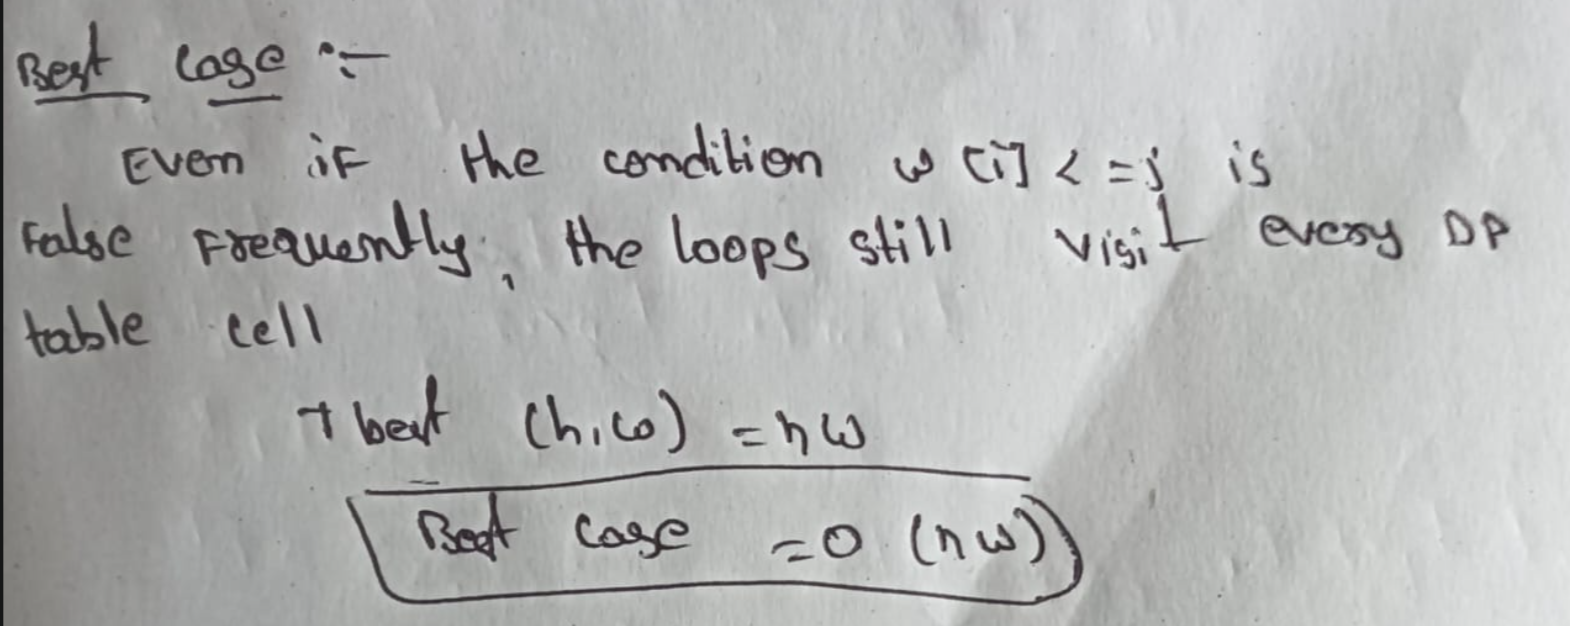 Best Case :-
Even if the condition w[i] <=j is
False Frequently, the loops still visit every DP
table cell
T best (n,w) = nw
Best Case = O (nw)